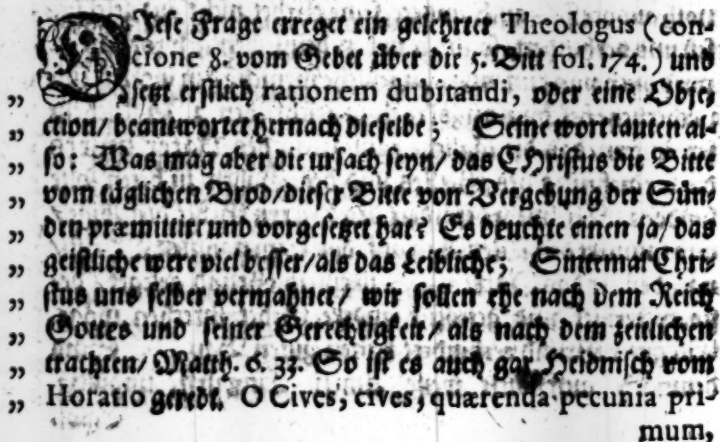 DJese Frage erreget ein gelehrter Theologus (con-
cione 8. vom Gebet über die 5. Bitt fol. 174.) und
„ setzt erstlich rationem dubitandi, oder eine Obje-
„ ction/ beantwortet hernach dieselbe; Seine wort lauten al-
„ so: Was mag aber die ursach seyn/ das CHristus die Bitte
„ vom täglichen Brod/ dieser Bitte von Vergebung der Sün-
„ den præmittirt und vorgesetzet hat? Es deuchte einen ja/ das
„ geistliche were viel besser/ als das Leibliche; Sintemal Chri-
„ stus uns selber vermahnet/ wir sollen ehe nach dem Reich
„ Gottes und seiner Gerechtigkeit/ als nach dem zeitlichen
„ trachten/ Matth. 6. 33. So ist es auch gar Heidnisch vom
„ Horatio geredt. O Cives, cives, quærenda pecunia pri-
mum,